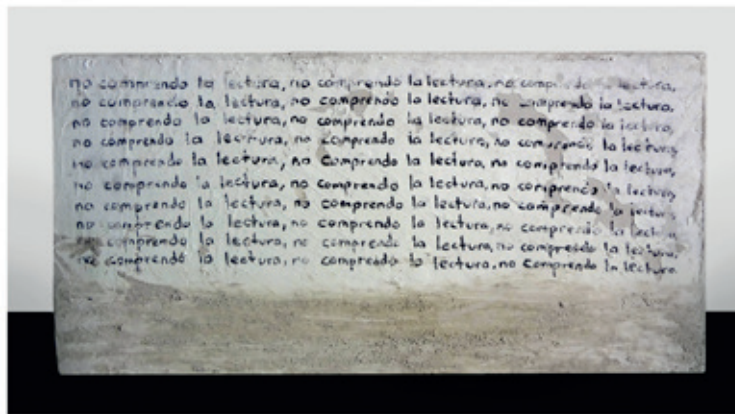 no comprendo la lectura, no comprendo la lectura, no comprendo la lectura,
no comprendo la lectura, no comprendo la lectura, no comprendo la lectura,
no comprendo la lectura, no comprendo la lectura, no comprendo la lectura,
no comprendo la lectura, no comprendo la lectura, no comprendo la lectura,
no comprendo la lectura, no comprendo la lectura, no comprendo la lectura,
no comprendo la lectura, no comprendo la lectura, no comprendo la lectura,
no comprendo la lectura, no comprendo la lectura, no comprendo la lectura,
no comprendo la lectura, no comprendo la lectura, no comprendo la lectura,
no comprendo la lectura, no comprendo la lectura, no comprendo la lectura,
no comprendo la lectura, no comprendo la lectura, no comprendo la lectura